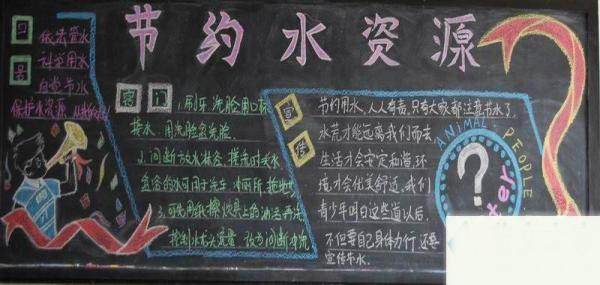 节约水资源
口号
依法管水
科学用水
自觉节水
保护水资源
窍门
1.刷牙、洗脸用口杯
接水,用洗脸盆洗脸
2.间断放水淋浴,搓洗时关水
盆浴的水可用于洗车、冲厕所、拖地
3.可先用纸擦炊具上的油污再洗
控制水龙头流量,改为间断冲洗
宣传
节约用水,人人有责,只有大家都注意节水了,
水荒才能远离我们而去,
生活才会安定和谐,环
境才会优美舒适,我们
青少年明白这些道以后,
不但要自己身体力行,还要
宣传节水。
ANIMAL PEOPLE
?